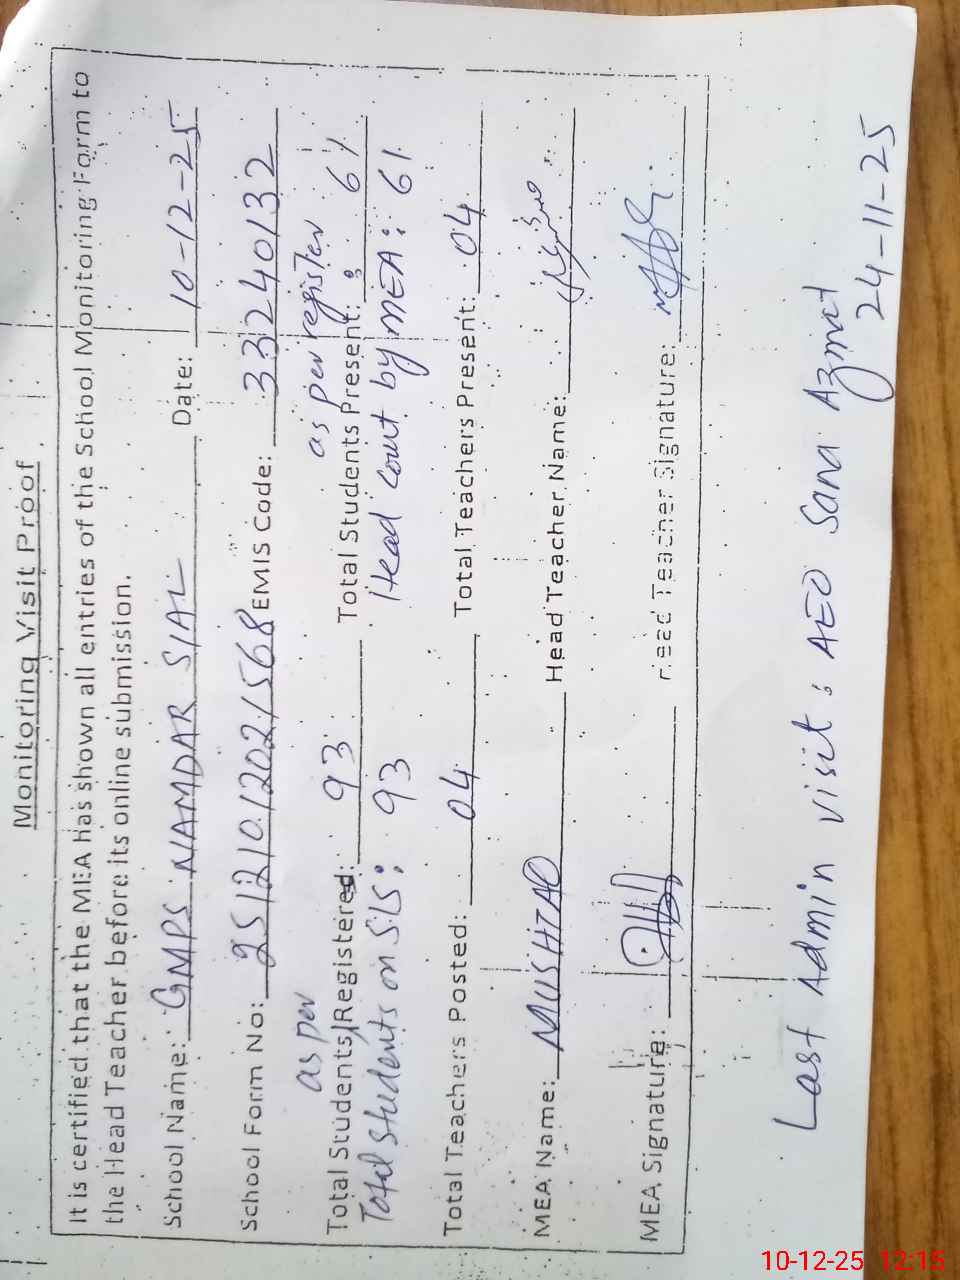 Monitoring Visit Proof
It is certified that the MEA has shown all entries of the School Monitoring Form to
the Head Teacher before its online submission.
School Name: GMPS NAMDAR SIAL Date: 10-12-25
School Form No: 25121012021568 EMIS Code: 33240132
as per as per register
Total Students Registered: 93 Total Students Present: 61
Total students on SIS: 93 Head count by MEA: 61
Total Teachers Posted: 04 Total Teachers Present: 04
MEA Name: MUSHTAQ Head Teacher Name:
MEA Signature: Head Teacher Signature:
Last Admin visit: AEO Sana Azmat
24-11-25
10-12-25 12:15